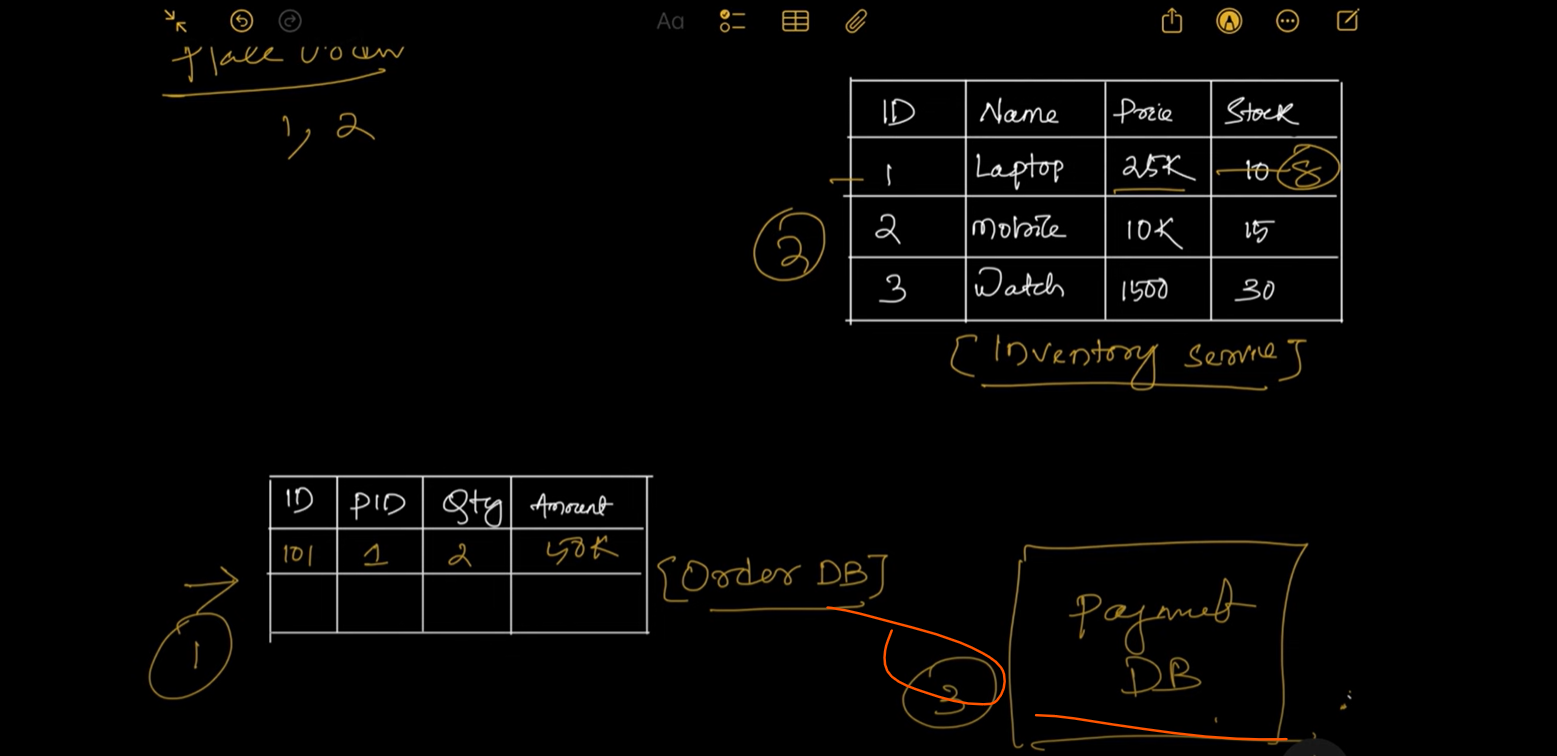 Aa
1, 2
ID Name Price Stock
1 Laptop 25K 10 8
2 Mobile 10K 15
3 Watch 1500 30
2
[Inventory Service]
ID PID Qty Amount
101 1 2 50K
[Order DB]
1
Payment
DB
3